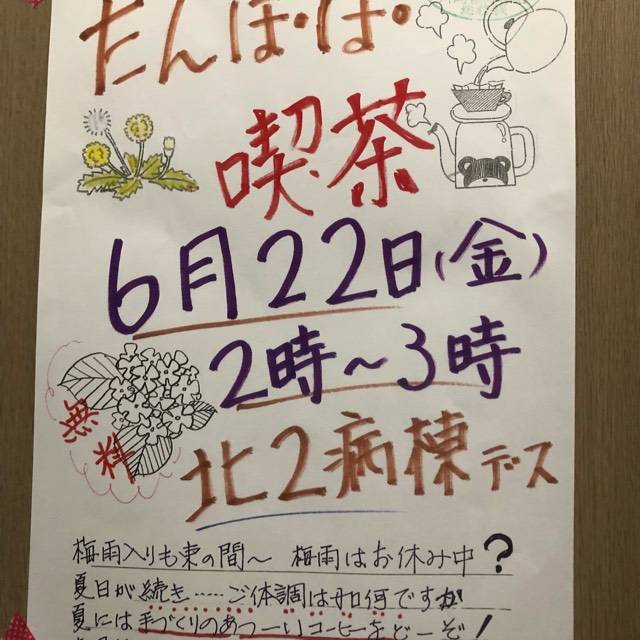 たんぽぽ
喫茶
6月22日(金)
2時~3時
無料
北2病棟デス
梅雨入りも束の間~ 梅雨はお休み中?
夏日が続き……ご体調は如何ですか
夏には手づくりのあつーいコーヒーをどーぞ!